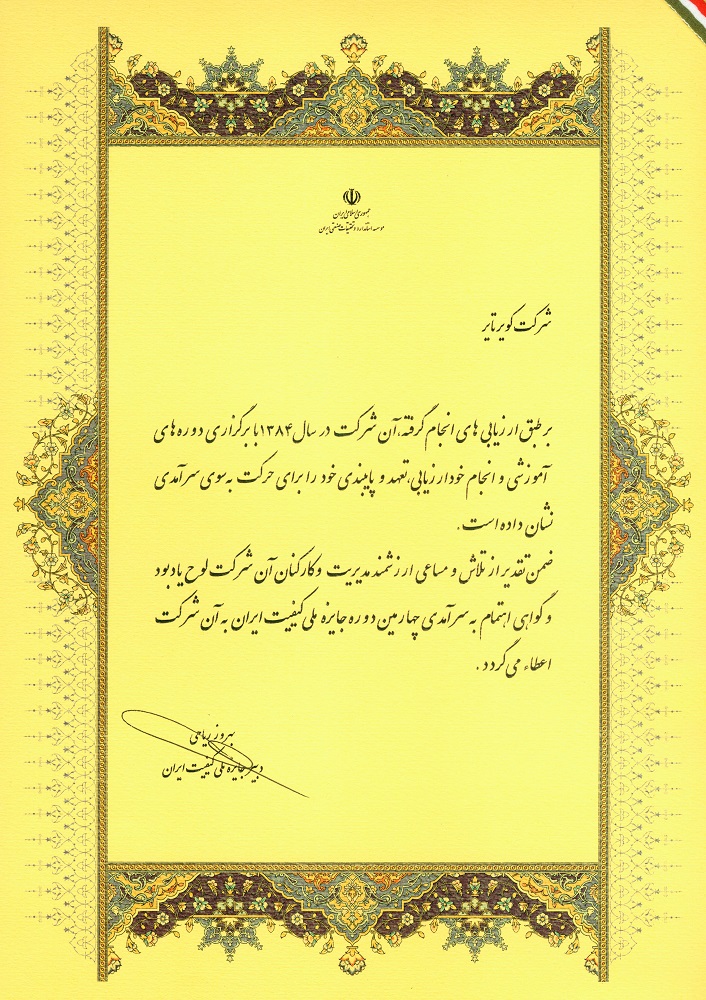 جمهوری اسلامی ایران
موسسه استاندارد و تحقیقات صنعتی ایران
شرکت کویر تایر
بر طبق ارزیابی های انجام گرفته،آن شرکت در سال ۱۳۸۴ با برگزاری دوره های
آموزشی و انجام خودارزیابی،تعهد و پایبندی خود را برای حرکت به سوی سرآمدی
نشان داده است.
ضمن تقدیر از تلاش و مساعی ارزشمند مدیریت و کارکنان آن شرکت لوح یادبود
و گواهی اهتمام به سرآمدی چهارمین دوره جایزه ملی کیفیت ایران به آن شرکت
اعطاء می گردد.
بهروز ریاحی
دبیر جایزه ملی کیفیت ایران